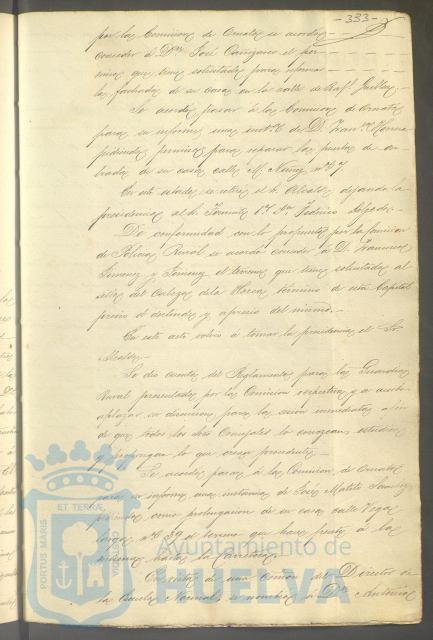 -333-
por la Comision de Ornato se acordó
conceder á Dn José Carrizares el per-
miso que tiene solicitado para reformar
la fachada de su casa en la calle de Rafl Guillen.
Se acordó pasar á la Comision de Ornato
para su informe una instª de D. Franco
pidiendo permiso para reparar la puerta de en-
trada de su casa, calle M. Nuñez nº 7.
En este estado se retira el Sr. Alcalde dejando la
presidencia al Sr. Teniente 1º Dn Federico
De conformidad con lo propuesto por la Comision
de Policia Rural se acordó conceder á D. Francisco
Gimenez y Gimenez el terreno que tiene solicitado al
sitio del Cabezo de la Horca, término de esta Capital
prévio el deslinde y aprecio del mismo.
En este acto volvió á tomar la presidencia el Sr.
Alcalde.
Se dió cuenta del Reglamento para la Guardia
Rural presentado por la Comision respectiva y se acordó
aplazar su discusion para la sesion inmediata á fin
de que todos los Sres Concejales lo conozcan, estudien
y propongan lo que crean procedente.
Se acordó pasar á la Comision de Ornato
para su informe una instancia de José Matito Sanchez
pidiendo como prolongacion de su casa calle Vega
larga nº 39 el terreno que hace frente á la
misma hasta la Carretera.
En vista de una comon del Director de
la Escuela Normal se nombró á Dn Antonio
PORTUS MARIS
ET TERRÆ
Ayuntamiento de
HUELVA